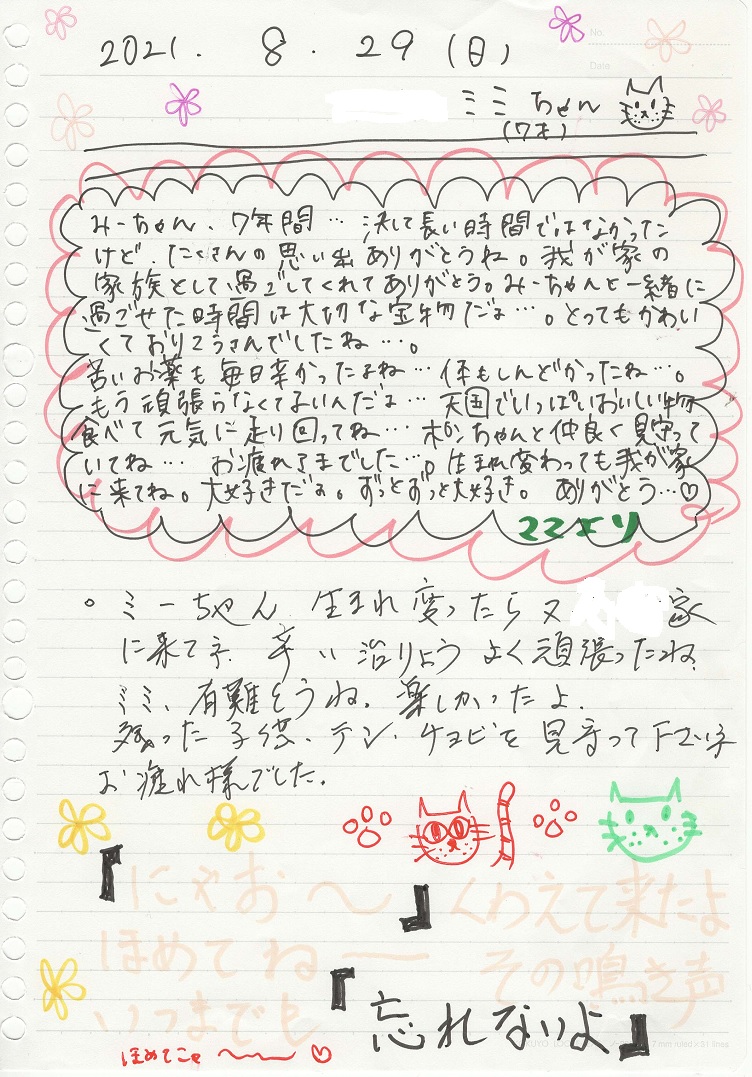 No.
Date
2021. 8. 29 (日)
ミミちゃん
(7才)
みーちゃん、7年間… 決して長い時間ではなかった
けど、たくさんの思い出ありがとうね。我が家の
家族として過ごしてくれてありがとう。みーちゃんと一緒に
過ごせた時間は大切な宝物だよ…。とってもかわい
くておりこうさんでしたね…。
苦いお薬も毎日辛かったよね… 体もしんどかったね…。
もう頑張らなくてよいんだよ… 天国でいっぱいおいしい物
食べて元気に走り回ってね… ポンちゃんと仲良く見守って
いてね… お疲れさまでした…。生まれ変わっても我が家
に来てね。大好きだよ。ずっとずっと大好き。ありがとう…♡
ココより
。ミーちゃん、生まれ変ったら又 家
に来て子。辛い治りょう よく頑張ったね。
ミミ、有難とうね。楽しかったよ。
残った子供、テン、チョビを見守って下さい子
お疲れ様でした。
『にゃお〜』くわえて来たよ
ほめてねー その鳴き声
いつまでも『忘れないよ』
ほめてこ〜 ♡
7 mm ruled×31 lines